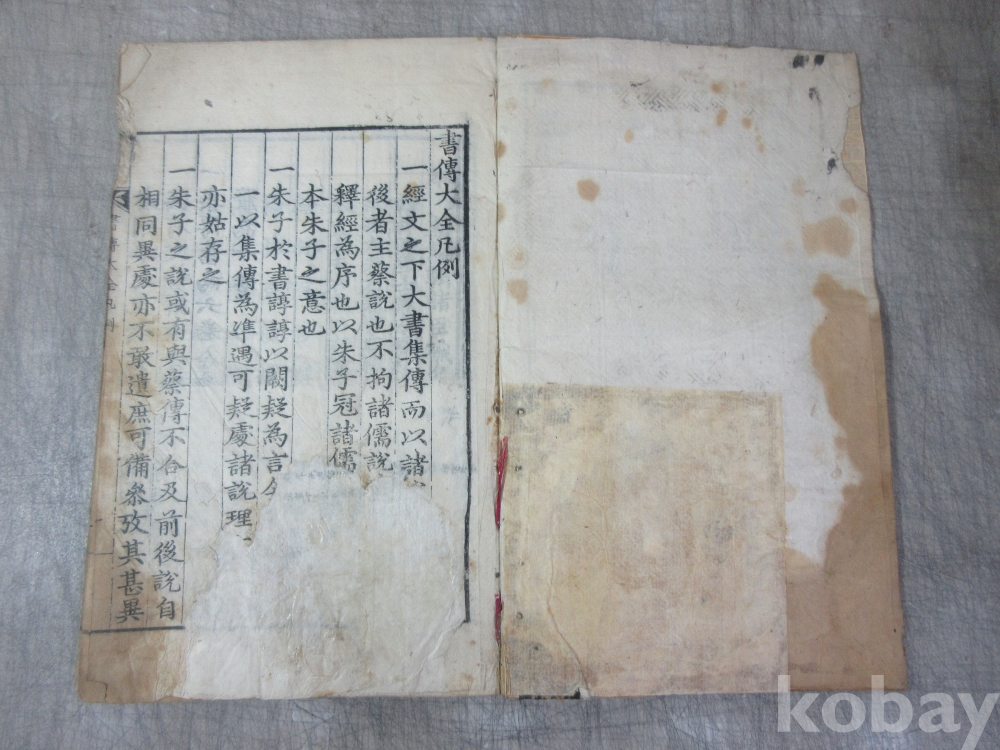 書傳大全凡例
一經文之下大書集傳而以諸
後者主蔡說也不拘諸儒說
釋經為序也以朱子冠諸儒
本朱子之意也
一朱子於書諄諄以闕疑為言
一以集傳為準遇可疑處諸說理
亦姑存之
一朱子之說或有與蔡傳不合及前後說自
相同異處亦不敢遺庶可備參攷其甚異
書傳大全凡例
kobay